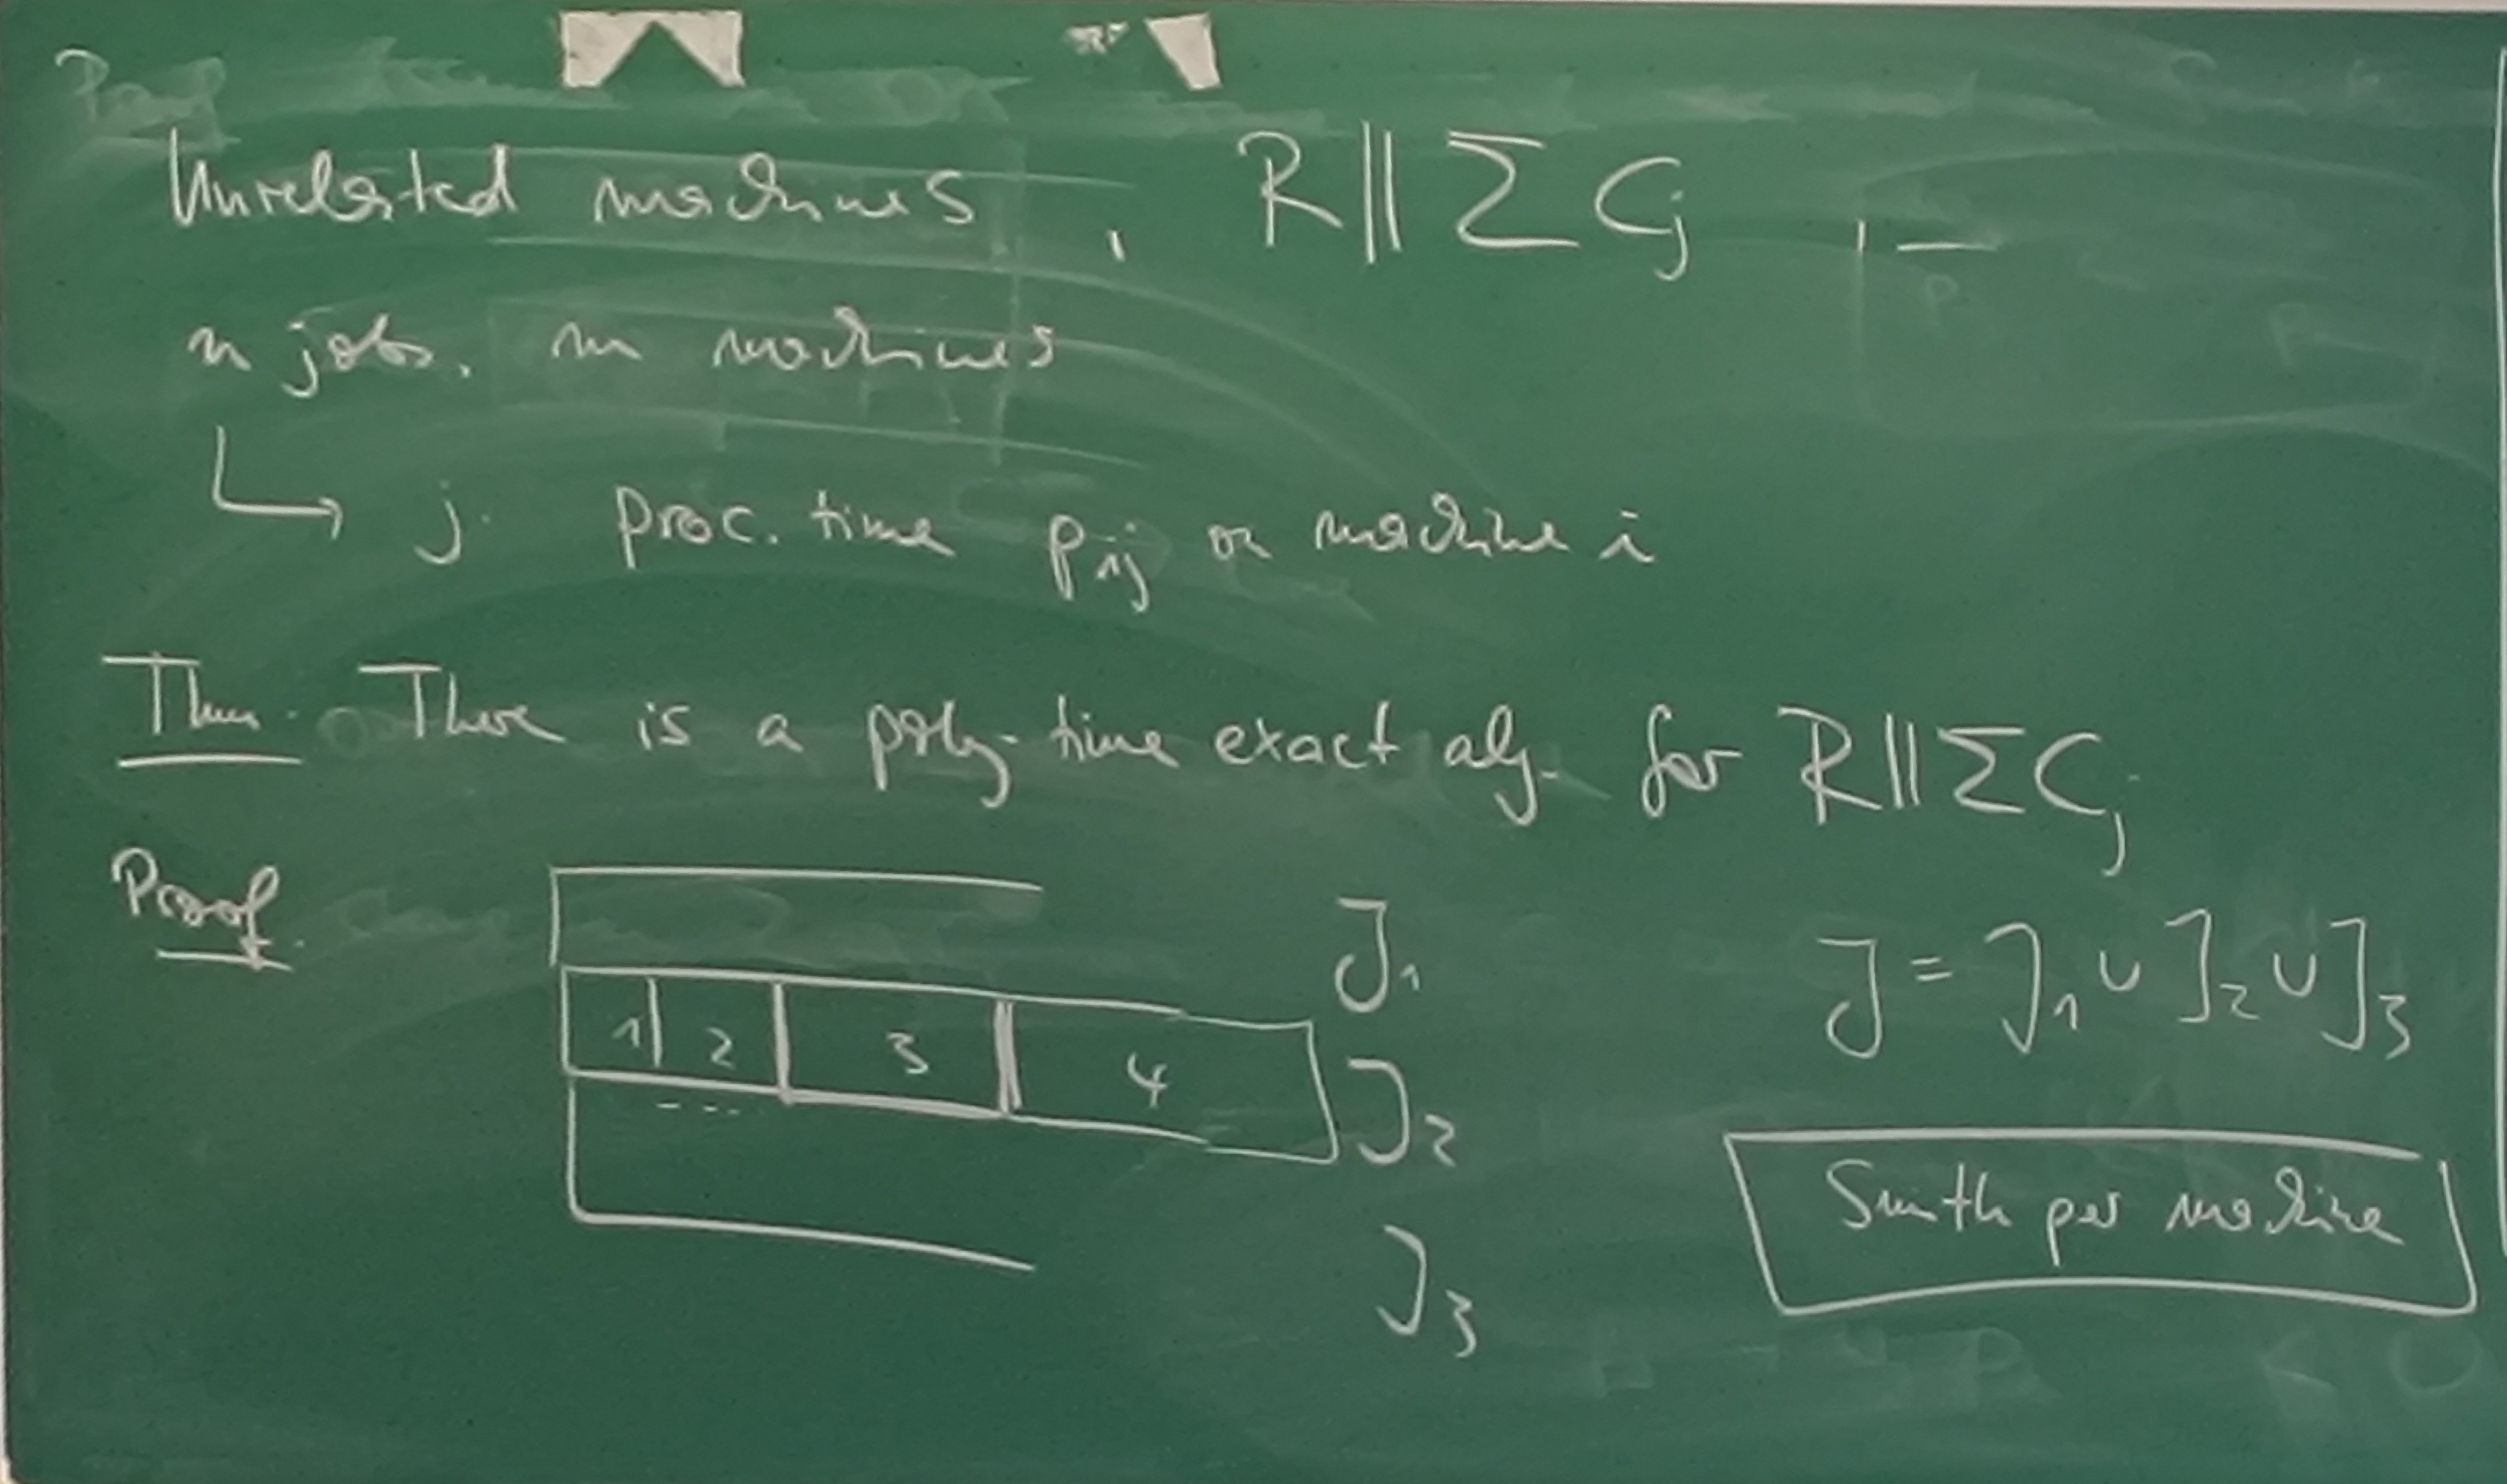 Unrelated machines, R||ΣCj
n jobs, m machines
↳ j. proc. time pij on machine i
Thm. There is a poly-time exact alg. for R||ΣCj
Proof.
J1
J = J1 ∪ J2 ∪ J3
1 2 3 4 J2
...
Smith per machine
J3